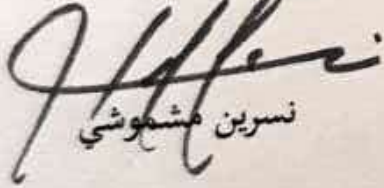 نسرين مشموشي